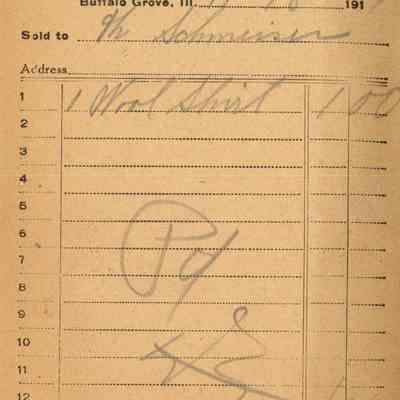 Buffalo Grove, Ill. 191
Sold to Schmeiser
Address
1 1 Wool Shirt 1 00
2
3
4
5
6
7
8
9
10
11
12
Pd